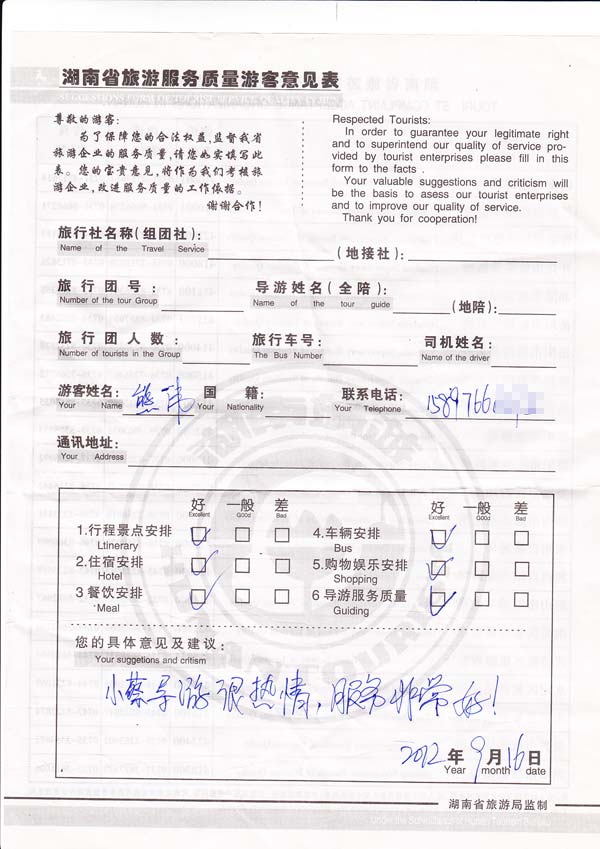 湖南省旅游服务质量游客意见表
尊敬的游客:
为了保障您的合法权益,监督我省
旅游企业的服务质量,请您如实填写此
表。您的宝贵意见,将作为我们考核旅
游企业,改进服务质量的工作依据。
谢谢合作!
Respected Tourists:
In order to guarantee your legitimate right
and to superintend our quality of service pro-
vided by tourist enterprises please fill in this
form to the facts .
Your valuable suggestions and criticism will
be the basis to assess our tourist enterprises
and to improve our quality of service.
Thank you for cooperation!
旅行社名称(组团社): (地接社):
Name of the Travel Service
旅行团号: 导游姓名(全陪) (地陪)
Number of the tour Group Name of the tour guide
旅行团人数: 旅行车号: 司机姓名:
Number of tourists in the Group The Bus Number Name of the driver
游客姓名: 熊伟 国籍: 联系电话: 15897661
Your Name Your Nationality Your Telephone
通讯地址:
Your Address
好 一般 差 好 一般 差
Excellent Good Bad Excellent Good Bad
1.行程景点安排 4.车辆安排
Ltinerary Bus
2.住宿安排 5.购物娱乐安排
Hotel Shopping
3 餐饮安排 6 导游服务质量
Meal Guiding
您的具体意见及建议:
Your suggetions and critism
小蔡导游很热情,服务非常好!
2012年9月16日
Year month date
湖南省旅游局监制
Under the Surveillance of Hunan Tourism Bureau